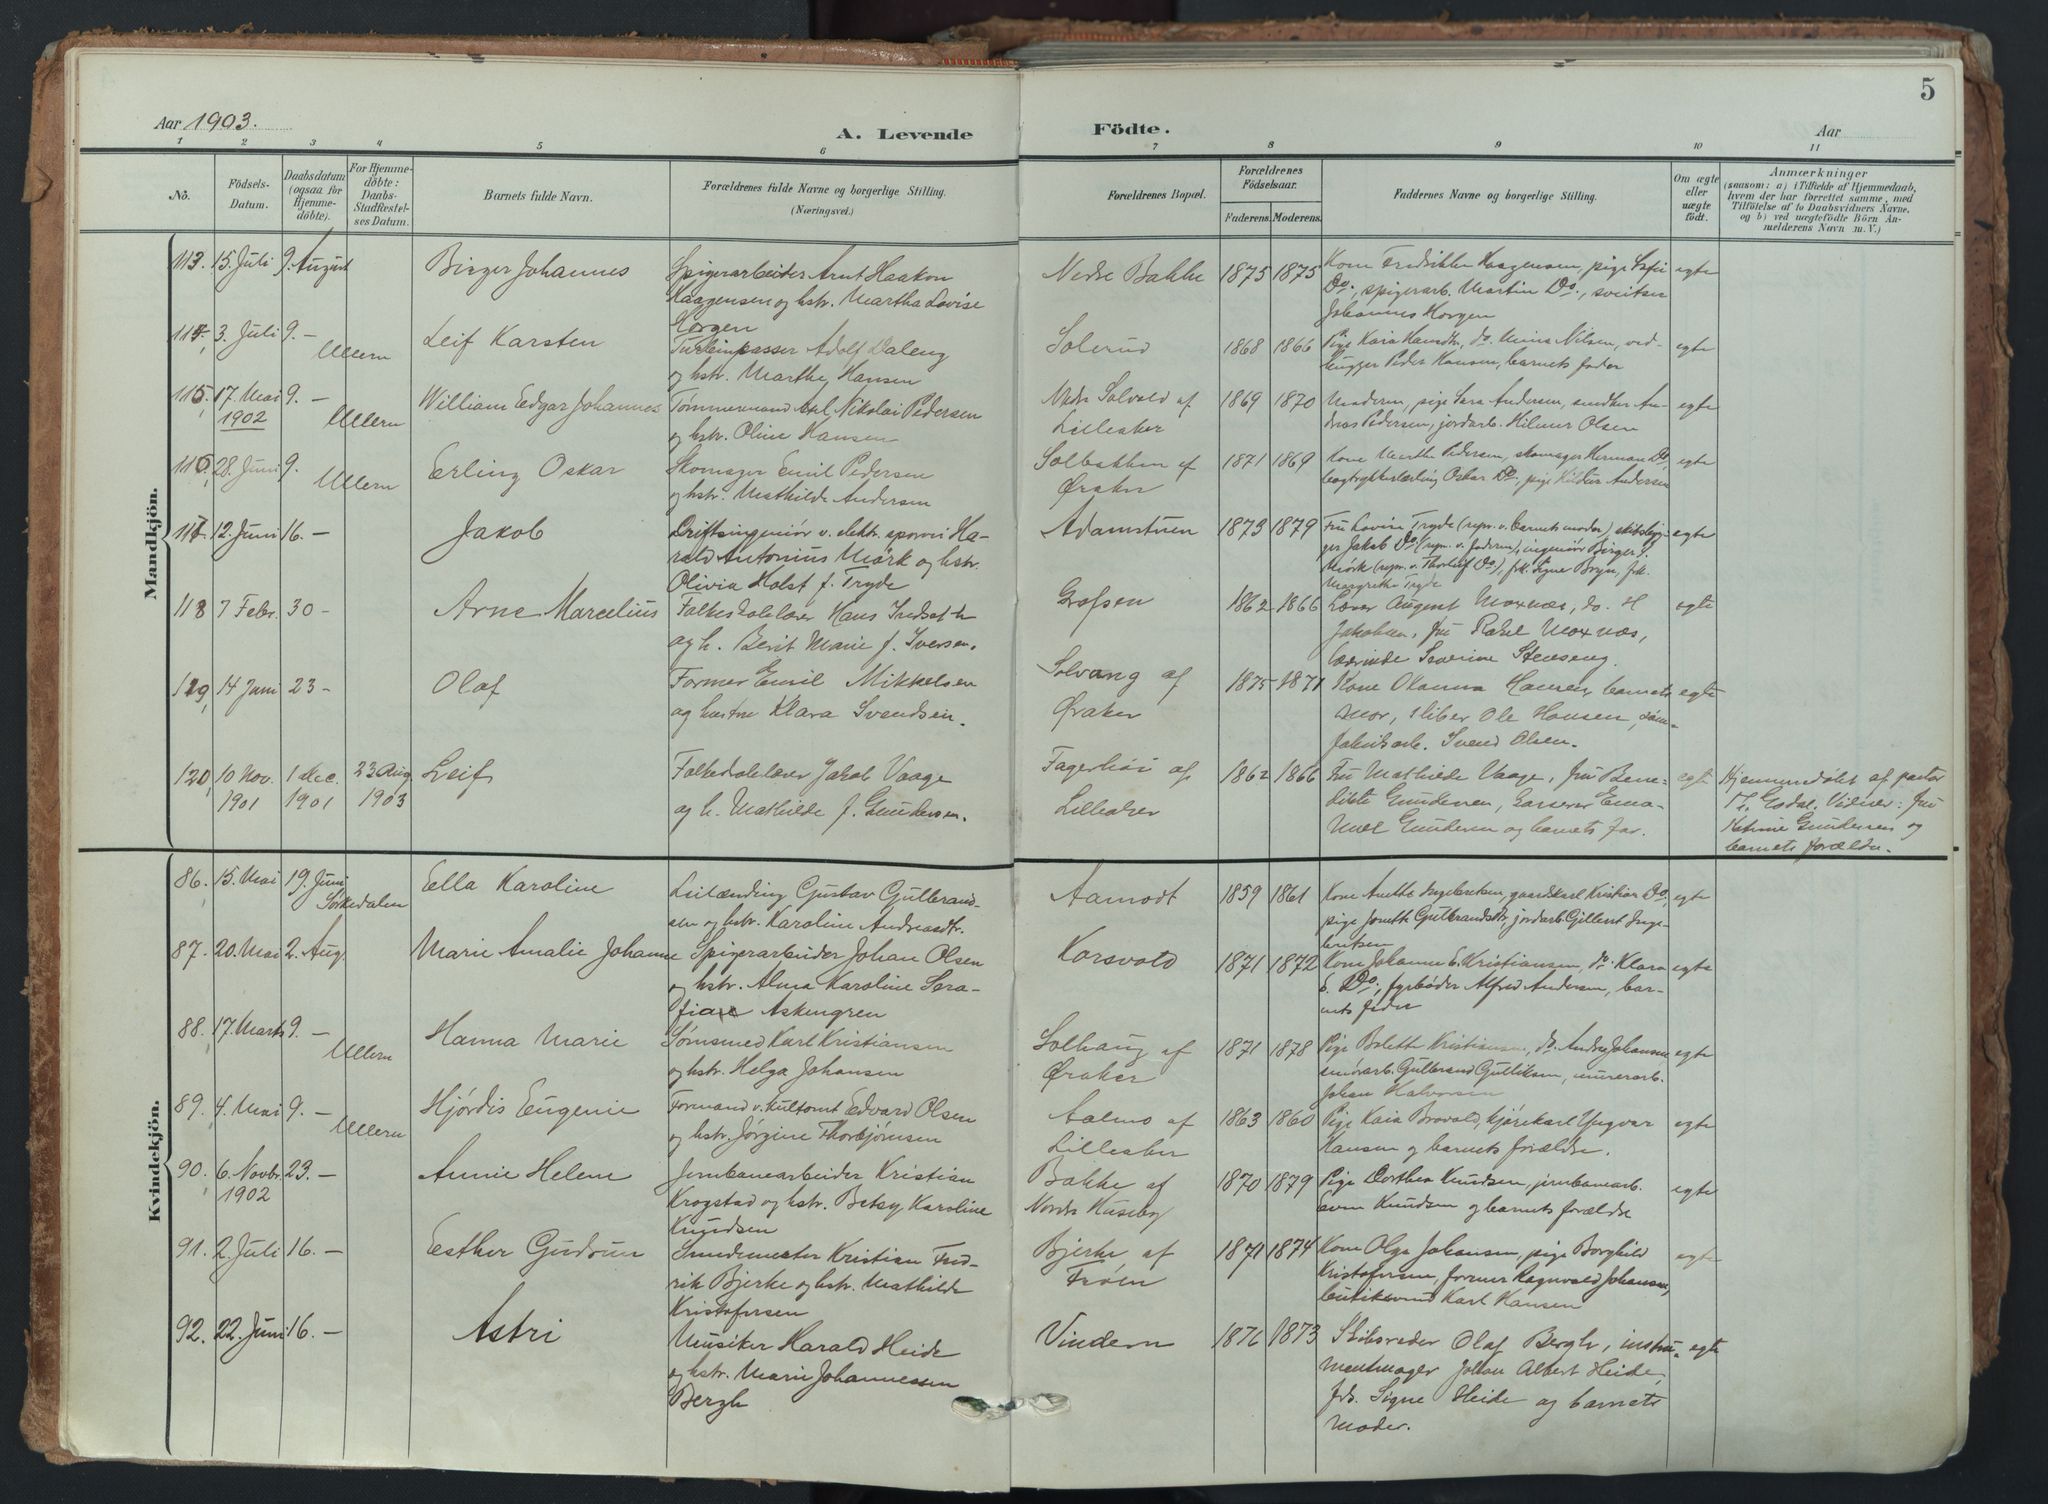 5
Aar 1903.
A. Levende Födte.
Aar
1 2 3 4 5 6 7 8 9 10 11
No.
Födsels-
Datum.
Daabsdatum
(ogsaa for
Hjemme-
döbte).
For Hjemme-
döbte:
Daabs-
Stadfæstel-
ses Datum.
Barnets fulde Navn.
Forældrenes fulde Navne og borgerlige Stilling.
(Næringsvei.)
Forældrenes Bopæl.
Forældrenes
Födselsaar.
Faderens. Moderens.
Faddernes Navne og borgerlige Stilling.
Om ægte
eller
uægte
födt.
Anmærkninger
(saasom: a) i Tilfælde af Hjemmedaab,
hvem der har forrettet samme, med
Tilföielse af to Daabsvidners Navne,
og b) ved uægtefödte Börn An-
melderens Navn m. V.)
Mandkjön.
113. 15. Juli 9. August
Birger Johannes
Spigerarbeider Arnt Haakon
Kaagensen og hstr. Martha Lovise
Horgen
Nedre Bakke
1875 1875
Kone Fredrikke Kaagensen, pige
Do., spigerarb. Martin Do., sveitser
Johannes Horgen
egte
114. 3. Juli 9. –
Ullern
Leif Karsten
Adolf Daleng
og hstr. Marthe Hansen
Solerud
1868 1866
Pige Kaia Hansdtr., do. Mina Nilsen, ved-
hugger Peder Hansen, barnets fader
egte
115. 17. Mai 9. –
1902
Ullern
William Edgar Johannes
Tømmermand Axel Nikolai Pedersen
og hstr. Oline Hansen
Nedre Solvold af
Lilleaker
1869 1870
Moderen, pige Sara Andersen, snedker An-
dreas Pedersen, jordarb. Hilmer Olsen
egte
116. 28. Juni 9.
Ullern
Erling Oskar
Skomager Emil Pedersen
og hstr. Mathilde Andersen
Solbakken af
Øraker
1871 1869
Kone Marthe Pedersen, skomager Herman Do.,
bogtrykkerlærling Oskar Do., pige Andersen
egte
117. 12. Juni 16. –
Jakob
Driftsingeniør v. elektr. sporvei Ha-
rald Antonius Mörk og hstr.
Olivia Holst f. Tryde
Adamstuen
1873 1879
Fru Lovise Tryde (repr. v. barnets moder), skibsbyg-
ger Jakob Do. (repr. v. faderen), ingeniör Birger
Mörk (repr. v. Thorleif Do.), frk. Signe Bryn, frk.
Margrethe Tryde
egte
118 7 Febr. 30 –
Arne Marcelius
Folkeskolelærer Hans Fredseth
og h. Berit Marie f. Iversen.
Grefsen
1862 1866
Lærer August Moxnæs, do. H
Jakobsen, fru Rakel Moxnæs,
lærerinde Severine Stenseng.
egte
119, 14 Juni 23 –
Olaf
Former Emil Mikkelsen
og hustru Klara Svendsen.
Solvang af
Øraker
1875 1871
Kone Olanna Hansen, barnets
mor, sliber Ole Hansen, söm-
fabrikarb. Svend Olsen.
egte
120, 10 Nov. 1 Dec. 23 Aug.
1901 1901 1903
Leif
Folkeskolelærer Jakob Vaage
og h. Mathilde f. Gundersen.
Fagerhöi af
Lilleaker
1862 1866
Fru Mathilde Vaage, fru Bene-
dikte Gundersen, Garver Ema-
nuel Gundersen og barnets far.
egte
Hjemmedøbt af pastor
Vidner: fru
Gundersen og
barnets forældre.
Kvindekjön.
86. 15. Mai 19. Juni
Sørkedalen
Ella Karoline
Leilænding Gustav Gulbrand-
sen og hstr. Karoline Andreasdtr.
Aamodt
1859 1861
Kone Anette Ingebretsen, gaardskarl Kristian Do.,
pige Jonette Gulbrandsdtr., jordarb. Gilbert Inge-
bretsen
egte
87. 20. Mai 2. Aug.
Marie Amalie Johanne
Spigerarbeider Johan Olsen
og hstr. Alma Karoline Sera-
fia Askengren
Korsvold
1871 1872
Kone Johanne E. Kristiansen, do. Klara
E. Do., fyrbøder Alfred Andersen, bar-
nets fader
egte
88. 17. Marts 9. –
Ullern
Hanna Marie
Sømsmed Karl Kristiansen
og hstr. Helga Johansen
Solhaug af
Øraker
1871 1878
Pige Bolette Kristiansen, do. Andrea Johansen
Gulbrand Gulliksen, murerarb.
Johan Halvorsen
egte
89. 4. Mai 9. –
Ullern
Hjördis Eugenie
Formand v. kultomt Edvard Olsen
og hstr. Jörgine Thorbjörnsen
Aalmo af
Lilleaker
1863 1860
Pige Kaia Brovold, kjörekarl Yngvar
Hansen og barnets forældre.
egte
90. 6. Novbr. 23. –
1902
Annie Helene
Jernbanearbeider Kristian
Krogstad og hstr. Betsy Karoline
Knudsen
Bakke af
Nordre Huseby
1870 1879
Pige Dorthea Knudsen, jernbanearb.
Even Knudsen og barnets forældre
egte
91. 2. Juli 16. –
Esther Gudrun
Smedemester Kristian Fred-
rik Bjerke og hstr. Mathilde
Kristofersen
Bjerke af
Frøen
1871 1874
Kone Olga Johansen, pige Borghild
Kristofersen, former Ragnvald Johansen,
Karl Hansen
egte
92. 22. Juni 16. –
Astri
Musiker Harald Heide
og hstr. Marie Johannessen
Bergh
Vindern
1876 1873
Skibsreder Olaf Bergh, instru-
mentmager Johan Albert Heide,
frk. Signe Heide og barnets
Moder.
egte